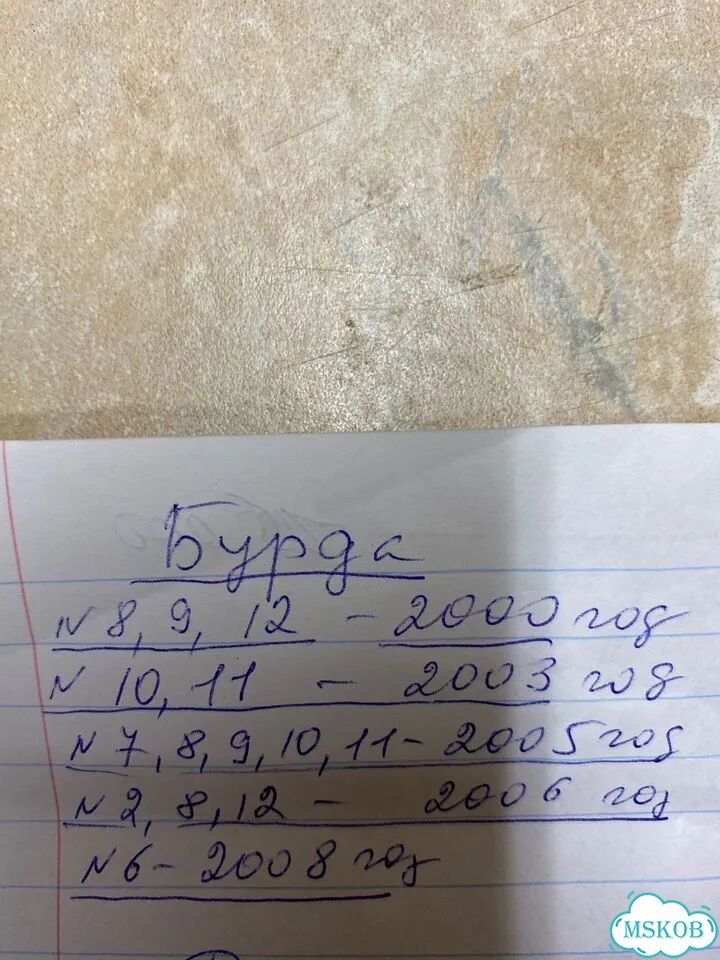 Бурда
N 8, 9, 12 - 2000 год
N 10, 11 - 2003 год
N 7, 8, 9, 10, 11 - 2005 год
N 2, 8, 12 - 2006 год
N 6 - 2008 год
MSKOB